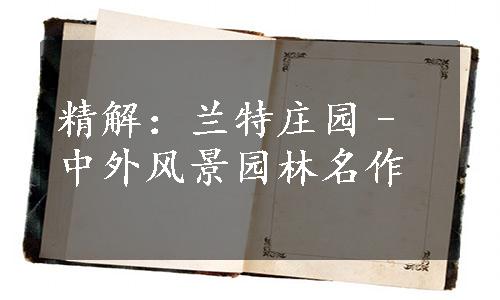 精解：兰特庄园–
中外风景园林名作